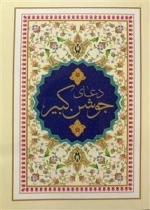 دعای
جوشن کبیر